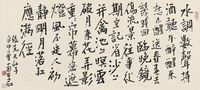 水調數聲持
酒聽午醉醒來愁未
醒送春春
去幾時回臨晚鏡
傷流景往事
後期空記省沙上
並禽池上暝雲
破月來花弄影
重重簾幕密遮
燈風不定人初
靜明日落紅
應滿徑